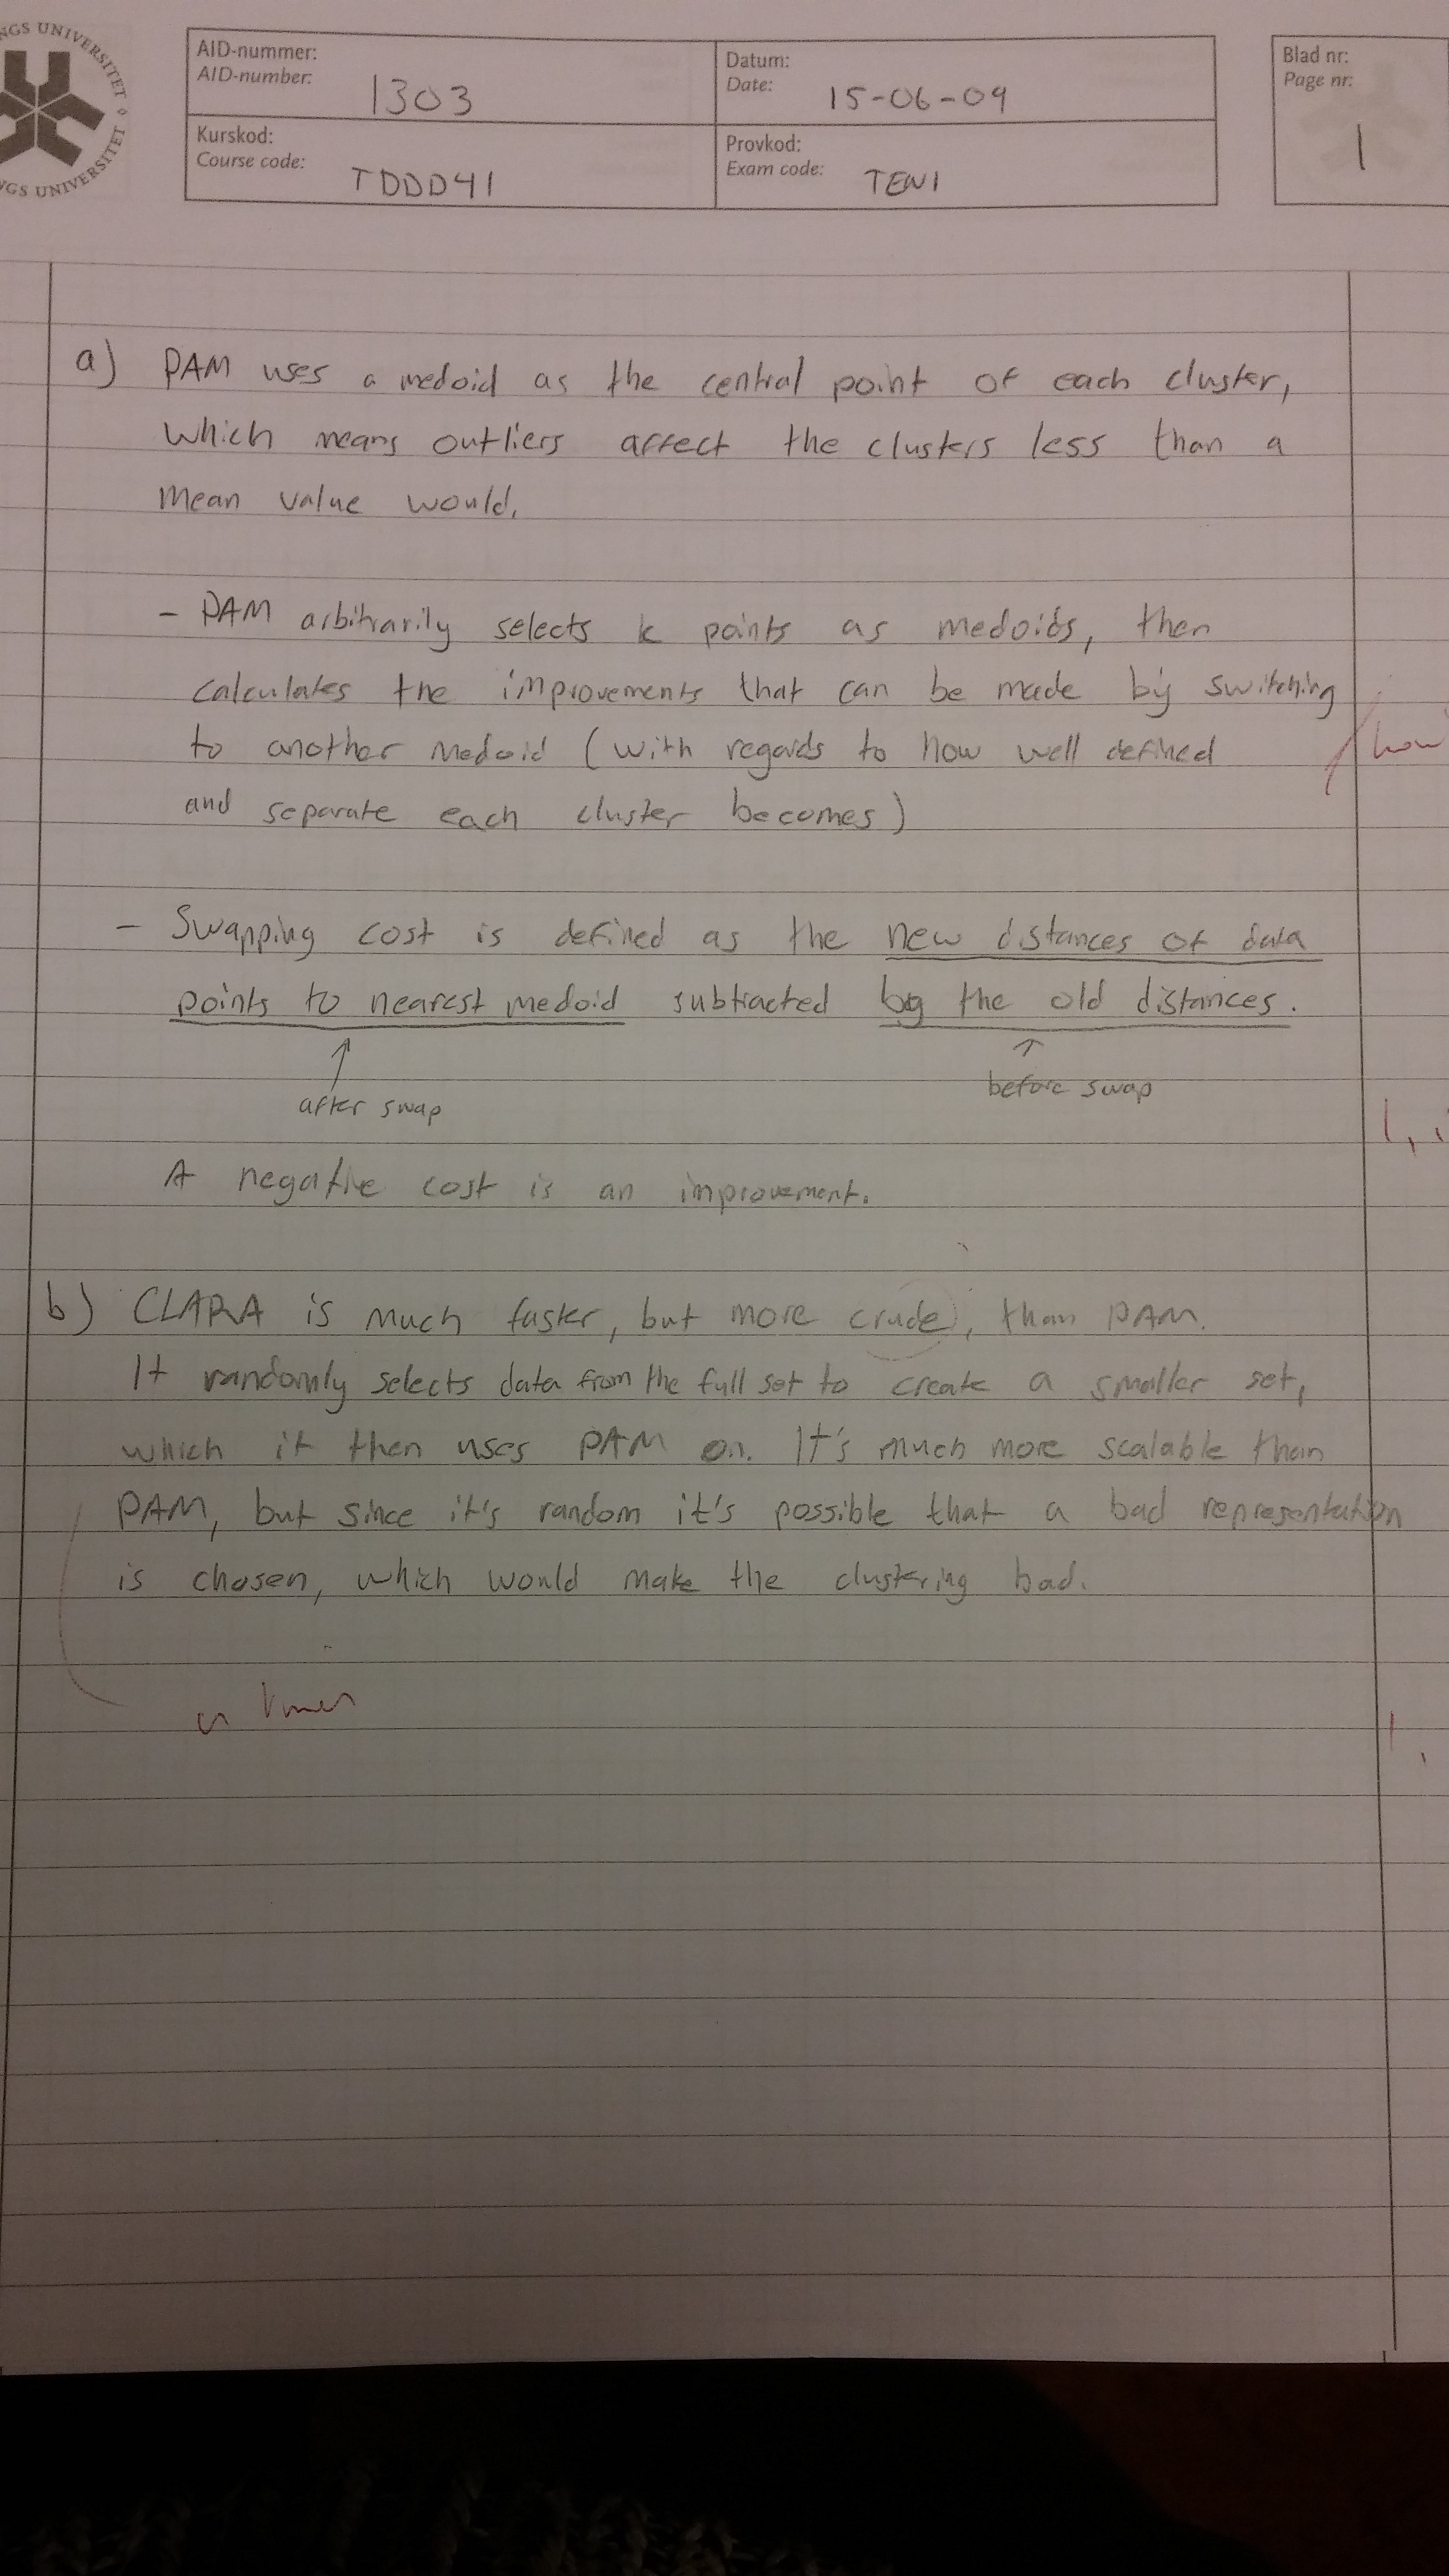 NGS UNIVERSITET
NGS UNIVERSITET
AID-nummer:
AID-number: 1303
Datum:
Date: 15-06-09
Blad nr:
Page nr:
1
Kurskod:
Course code: TDDD41
Provkod:
Exam code: TEN1
a) PAM uses a medoid as the central point of each cluster,
which means outliers affect the clusters less than a
mean value would.
- PAM arbitrarily selects k points as medoids, then
calculates the improvements that can be made by switching
to another medoid (with regards to how well defined
how
and separate each cluster becomes)
- Swapping cost is defined as the new distances of data
points to nearest medoid subtracted by the old distances.
↑ ↑
after swap before swap
1,
A negative cost is an improvement.
b) CLARA is much faster, but more crude, than PAM.
It randomly selects data from the full set to create a smaller set,
which it then uses PAM on. It's much more scalable than
PAM, but since it's random it's possible that a bad representation
is chosen, which would make the clustering bad.